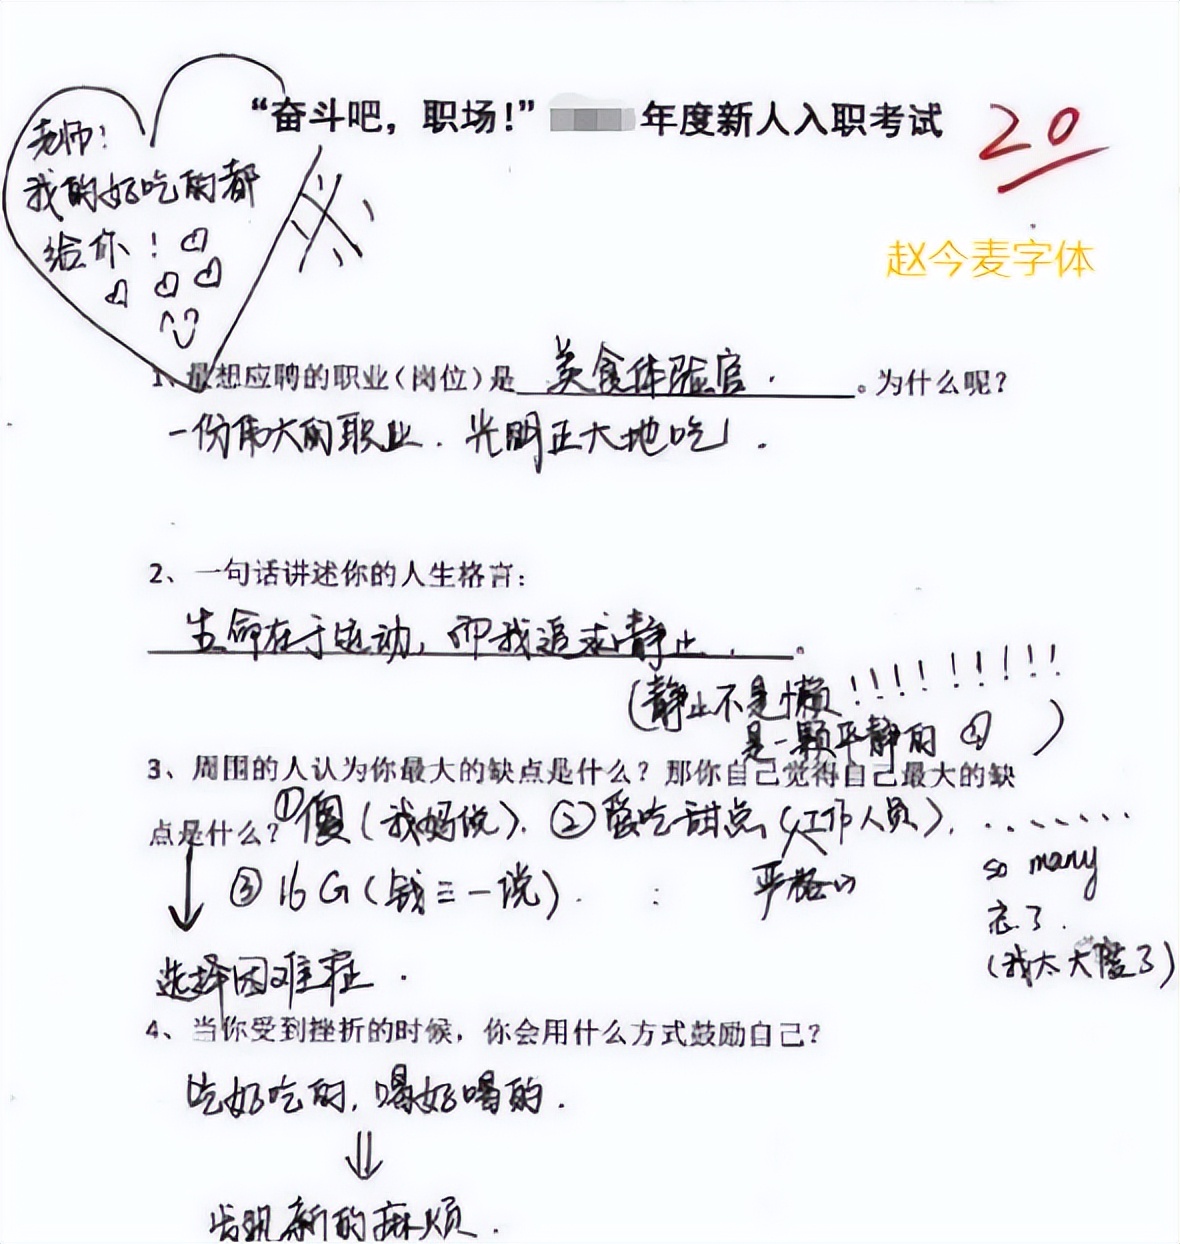 “奋斗吧，职场！” 年度新人入职考试
20
老师：
我的好吃的都
给你！
赵今麦字体
1、最想应聘的职业（岗位）是 美食体验官. 。为什么呢？
一份伟大的职业. 光明正大地吃！.
2、一句话讲述你的人生格言：
生命在于运动，而我追求静止. 。
（静止不是懒！！！！！！！！！
是一颗平静的心）
3、周围的人认为你最大的缺点是什么？那你自己觉得自己最大的缺
点是什么？①傻（我妈说）. ②爱吃甜点（工作人员）. .......
③16G（钱三一说）.
严格的
so many
忘了.
（我太大度了）
选择困难症.
4、当你受到挫折的时候，你会用什么方式鼓励自己？
吃好吃的，喝好喝的.
发现新的麻烦.